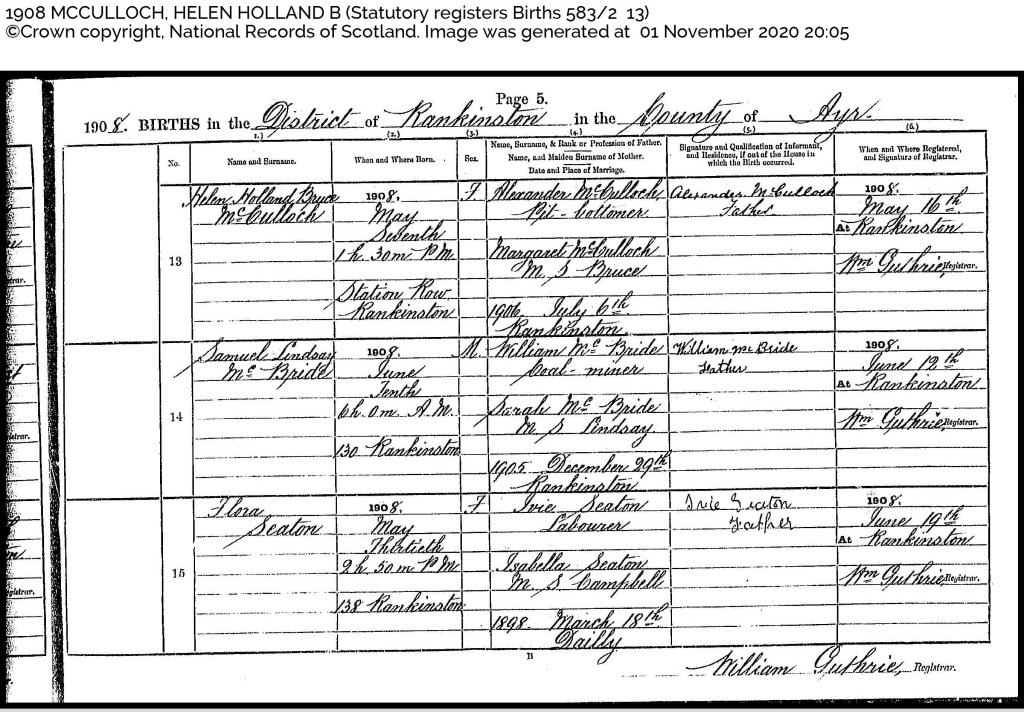 1908 MCCULLOCH, HELEN HOLLAND B (Statutory registers Births 583/2 13)
©Crown copyright, National Records of Scotland. Image was generated at 01 November 2020 20:05
Page 5.
1908. BIRTHS in the District of Rankinston in the County of Ayr.
(1.) (2.) (3.) (4.) (5.) (6.)
No.
Name and Surname.
When and Where Born.
Sex.
Name, Surname, & Rank or Profession of Father.
Name, and Maiden Surname of Mother.
Date and Place of Marriage.
Signature and Qualification of Informant,
and Residence, if out of the House in
which the Birth occurred.
When and Where Registered,
and Signature of Registrar.
13
Helen Holland Bruce
McCulloch
1908.
May
Seventh
1 h. 30 m. P.M.
Station Row,
Rankinston
F
Alexander McCulloch
Pit-bottomer
Margaret McCulloch
M. S. Bruce
1906 July 6th
Rankinston
Alexander McCulloch
Father
1908.
May 16th
At Rankinston
Wm Guthrie, Registrar.
14
Samuel Lindsay
Mc Bride
1908.
June
Tenth
6 h. 0 m. A.M.
130 Rankinston
M.
William Mc Bride
Coal-miner
Sarah Mc Bride
M. S. Lindsay
1905 December 29th
Rankinston
William Mc Bride
Father
1908.
June 12th
At Rankinston
Wm Guthrie, Registrar.
15
Flora
Seaton
1908.
May
Thirtieth
2 h. 50 m. P.M.
138 Rankinston
F
Ivie Seaton
Labourer
Isabella Seaton
M. S. Campbell
1898 March 18th
Dailly
Ivie Seaton
Father
1908.
June 19th
At Rankinston
Wm Guthrie, Registrar.
B
William Guthrie, Registrar.